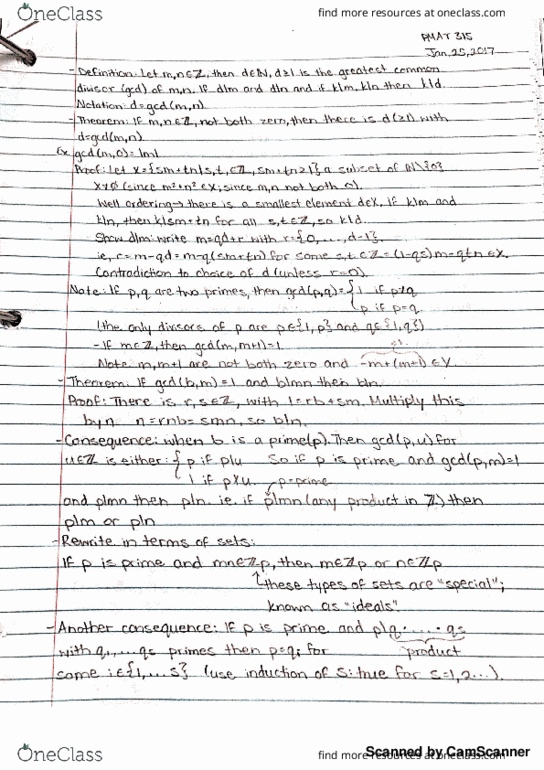 OneClass
find more resources at oneclass.com
PMAT 315
Jan. 25, 2017
- Definition: Let m,n∈ℤ, then d∈ℕ, d≥1 is the greatest common
divisor (gcd) of m,n. If d|m and d|n and if k|m, k|n then k|d.
Notation: d=gcd(m,n)
- Theorem: If m,n∈ℤ, not both zero, then there is d(≥1) with
d=gcd(m,n)
Ex. gcd(m,0)=|m|
Proof: Let X={sm+tn|s,t,∈ℤ, sm+tn≥1} a subset of ℕ\{0}
X≠∅ (since m²+n²∈X; since m,n not both 0).
Well ordering→there is a smallest element d∈X. If k|m and
k|n, then k|sm+tn for all s,t∈ℤ, so k|d.
Show d|m: write m=qd+r with r={0,...,d-1}.
ie, r=m-qd=m-q(sm+tn) for some s,t∈ℤ=(1-qs)m-qtn∈X.
Contradiction to choice of d (unless r=0).
Note: If p,q are two primes, then gcd(p,q)={1 if p≠q
p if p=q
(the only divisors of p are p∈{1,p} and q∈{1,q})
- If m∈ℤ, then gcd(m,m+1)=1.
Note: m,m+1 are not both zero and -m+(m+1)∈X.
- Theorem: If gcd(b,m)=1 and b|mn then b|n.
Proof: There is r,s∈ℤ, with 1=rb+sm. Multiply this
by n n=rnb=smn, so b|n.
- Consequence: when b is a prime(p). Then gcd(p,u) for
u∈ℤ is either: {p if p|u So if p is prime and gcd(p,m)=1
1 if p∤u. p=prime
and p|mn then p|n. ie. if p|mn (any product in ℤ) then
p|m or p|n
- Rewrite in terms of sets:
If p is prime and mn∈ℤp, then m∈ℤp or n∈ℤp
these types of sets are "special";
known as "ideals".
- Another consequence: If p is prime and p|q·...·qs
with q,,...qs primes then p=qi for product
some i∈{1,...s} (use induction of S: true for s=1,2...).
OneClass
find more resources at oneclass.com
Scanned by CamScanner